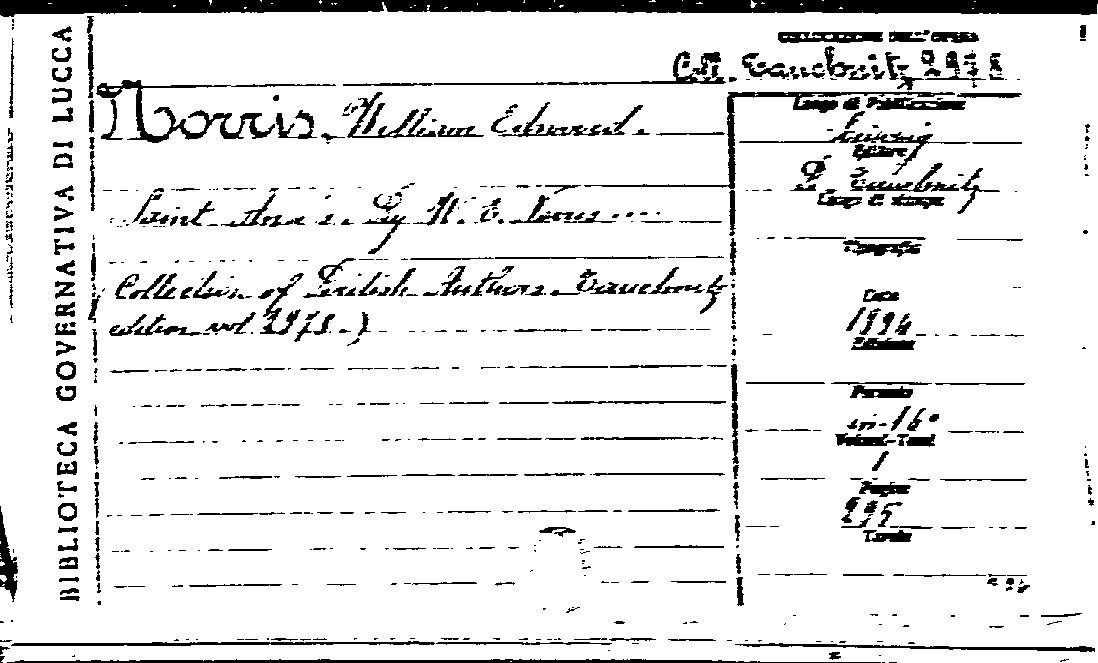 BIBLIOTECA GOVERNATIVA DI LUCCA
COLLOCAZIONE DELL'OPERA
Coll. Tauchnitz 2978
Norris, William Edward.
Saint Ann's. By W. E. Norris ....
(Collection of British Authors. Tauchnitz
edition vol. 2978.)
Luogo di Pubblicazione
Leipzig
Editore
B. Tauchnitz
Luogo di stampa
Tipografia
Data
1894
Edizione
Formato
in-16°
Volumi-Tomi
1
Pagine
295
Tavole